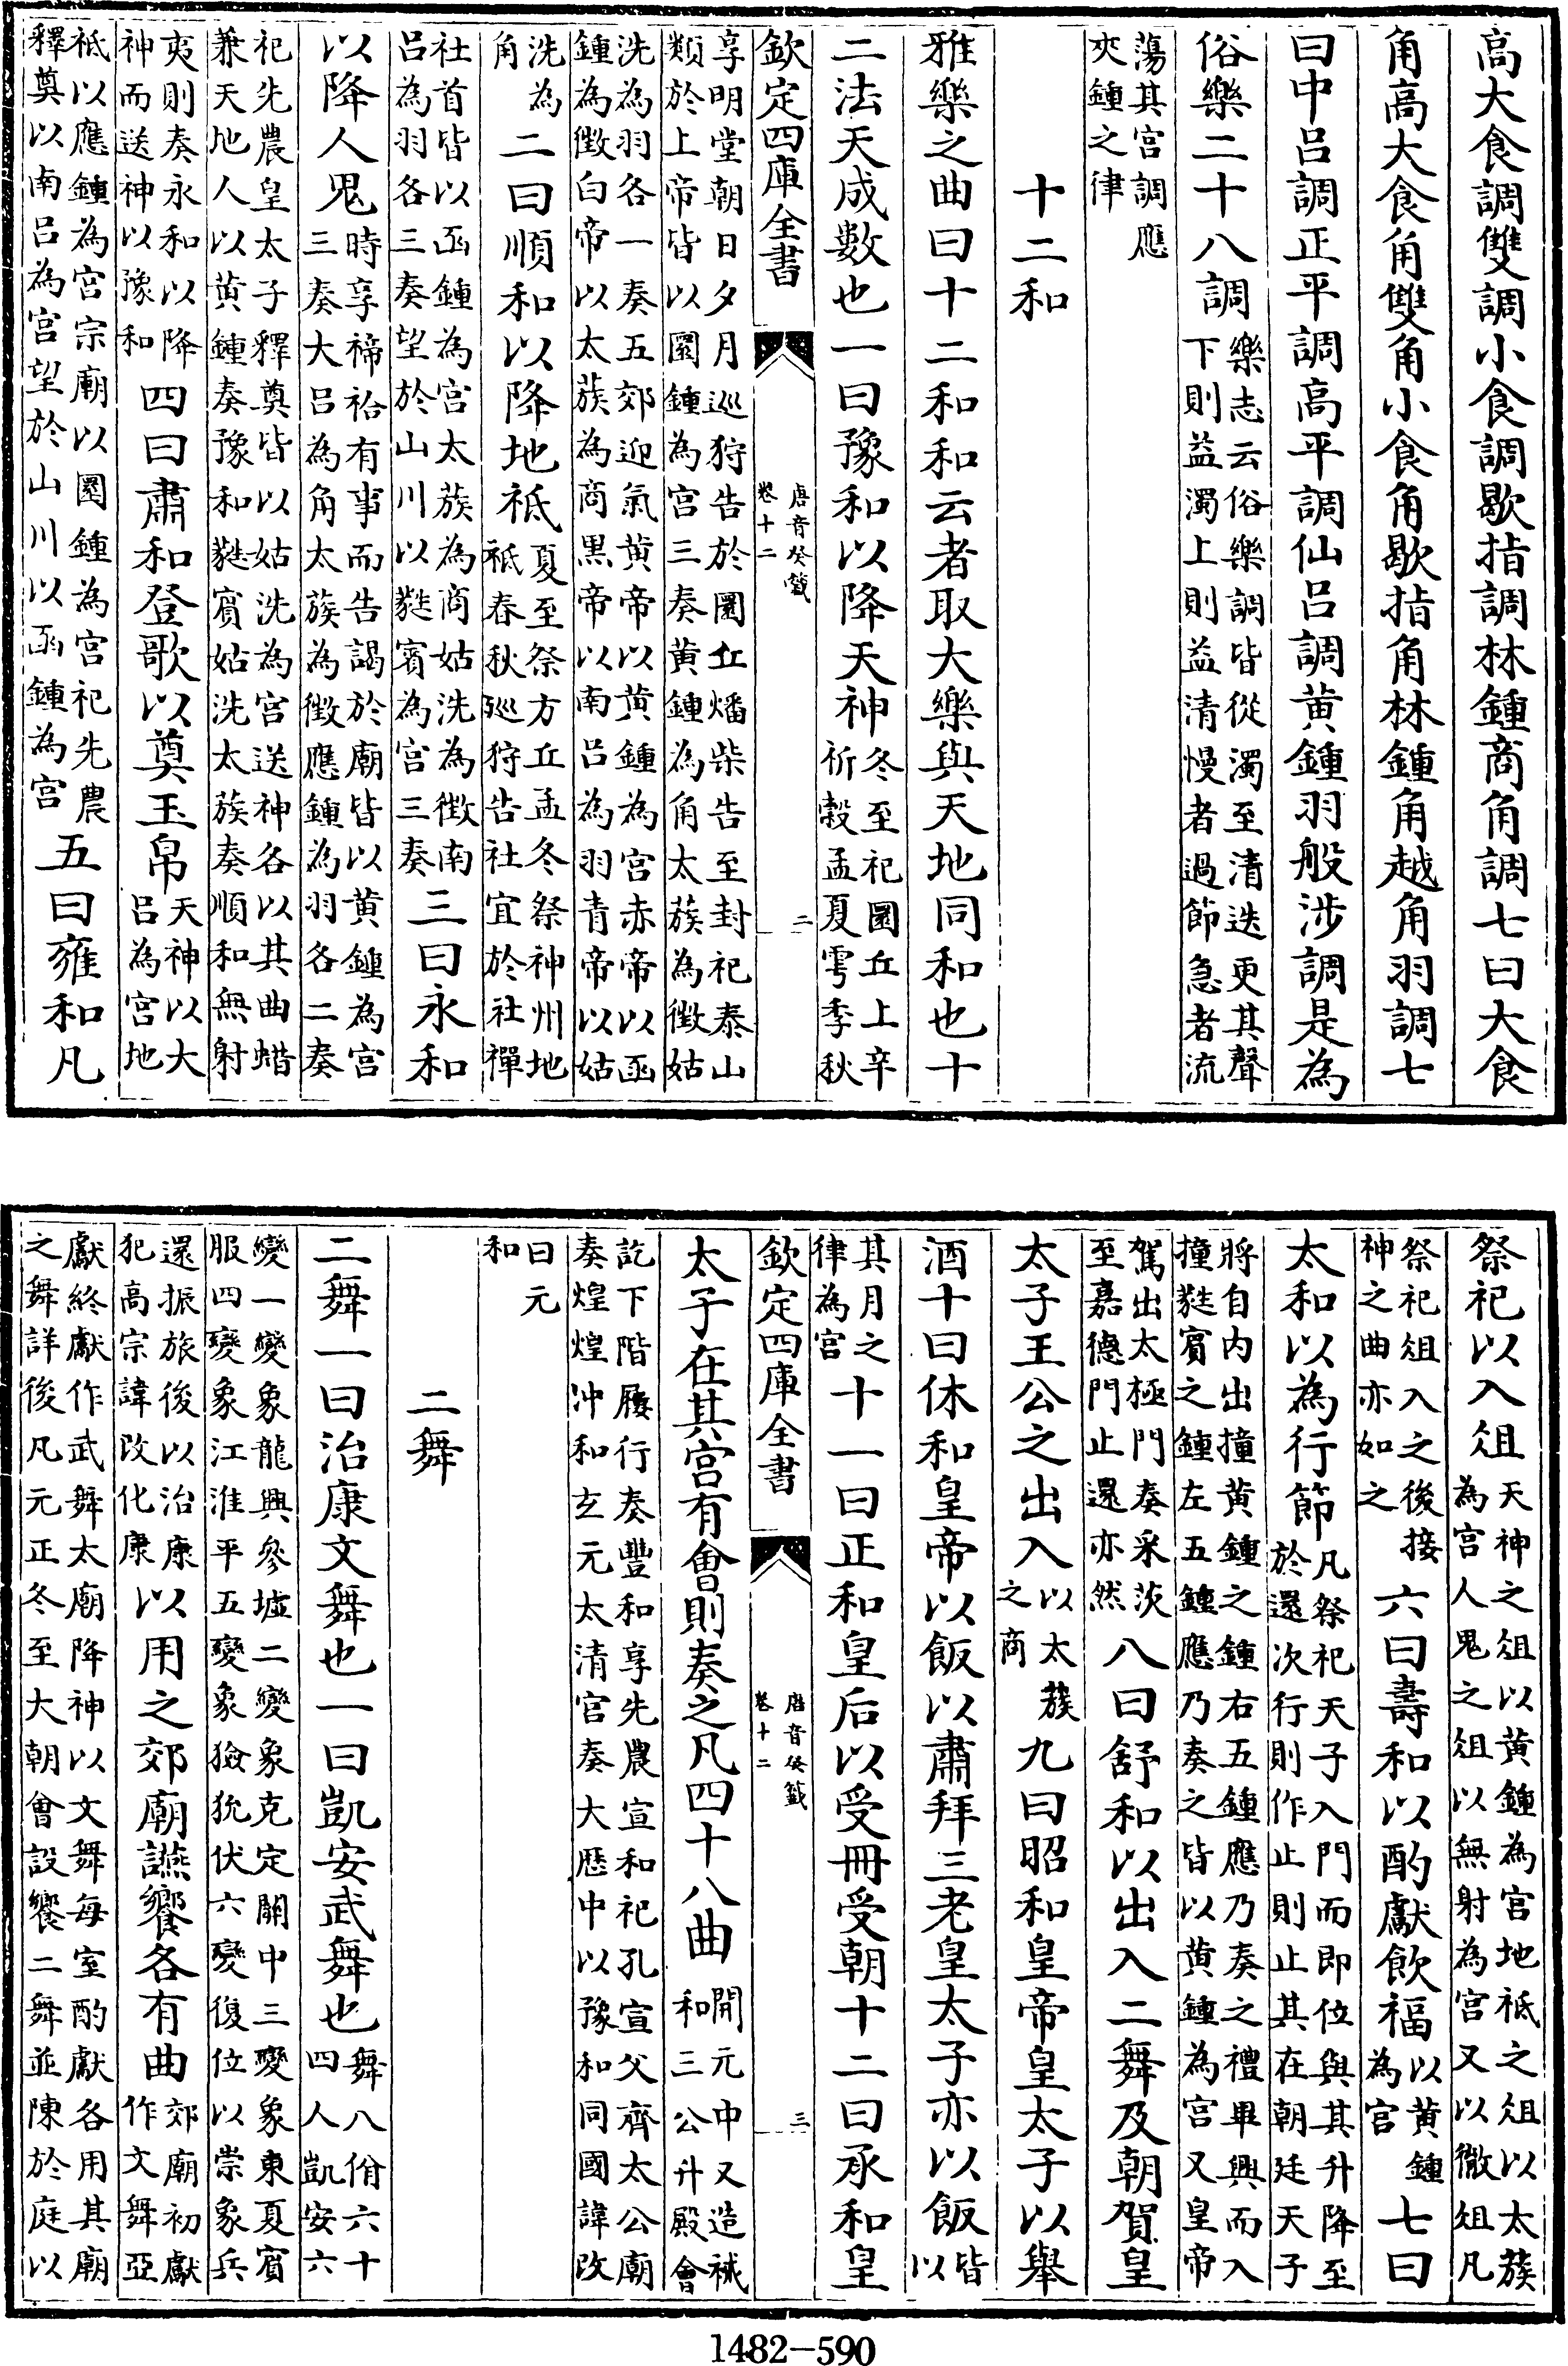 高大食調雙調小食調歇指調林鍾商角調七曰大食
角高大食角雙角小食角歇指角林鍾角越角羽調七
曰中呂調正平調高平調仙呂調黄鍾羽般涉調是為
俗樂二十八調樂志云俗樂調皆從濁至清迭更其聲
下則益濁上則益清慢者過節急者流
蕩其宫調應
夾鍾之律
十二和
雅樂之曲曰十二和和云者取大樂與天地同和也十
二法天成數也一曰豫和以降天神冬至祀圜丘上辛
祈榖孟夏雩季秋
欽定四庫全書
唐音癸籖
卷十二
二
享明堂朝日夕月巡狩告於圜丘燔柴告至封祀泰山
類於上帝皆以圜鍾為宫三奏黄鍾為角太蔟為徵姑
洗為羽各一奏五郊迎氣黄帝以黄鍾為宫赤帝以函
鍾為徵白帝以太蔟為商黒帝以南呂為羽青帝以姑
洗為
角
二曰順和以降地祇夏至祭方丘孟冬祭神州地
祇春秋廵狩告社宜於社禪
社首皆以函鍾為宫太蔟為商姑洗為徵南
呂為羽各三奏望於山川以蕤賓為宫三奏
三曰永和
以降人鬼時享禘祫有事而告謁於廟皆以黄鍾為宫
三奏大呂為角太蔟為徵應鍾為羽各二奏
祀先農皇太子釋奠皆以姑洗為宫送神各以其曲蜡
兼天地人以黄鍾奏豫和蕤賓姑洗太蔟奏順和無射
夷則奏永和以降
神而送神以豫和
四曰肅和登歌以奠玉帛天神以大
呂為宫地
祇以應鍾為宫宗廟以圜鍾為宫祀先農
釋奠以南呂為宫望於山川以函鍾為宫
五曰雍和凡
祭祀以入俎天神之俎以黄鍾為宫地祇之俎以太蔟
為宫人鬼之俎以無射為宫又以徹俎凡
祭祀俎入之後接
神之曲亦如之
六曰壽和以酌獻飲福以黄鍾
為宫
七曰
太和以為行節凡祭祀天子入門而即位與其升降至
於還次行則作止則止其在朝廷天子
將自内出撞黄鍾之鍾右五鍾應乃奏之禮畢興而入
撞蕤賓之鍾左五鍾應乃奏之皆以黄鍾為宫又皇帝
駕出太極門奏采茨
至嘉德門止還亦然
八曰舒和以出入二舞及朝賀皇
太子王公之出入以太蔟
之商
九曰昭和皇帝皇太子以舉
酒十曰休和皇帝以飯以肅拜三老皇太子亦以飯皆
以
其月之
律為宫
十一曰正和皇后以受冊受朝十二曰承和皇
欽定四庫全書
唐音癸籖
卷十二
三
太子在其宫有會則奏之凡四十八曲開元中又造祴
和三公升殿會
訖下階履行奏豐和享先農宣和祀孔宣父齊太公廟
奏煌煌冲和玄元太清宫奏大厯中以豫和同國諱改
曰元
和
二舞
二舞一曰治康文舞也一曰凱安武舞也舞八佾六十
四人凱安六
變一變象龍興參墟二變象克定關中三變象東夏賓
服四變象江淮平五變象獫狁伏六變復位以崇象兵
還振旅後以治康
犯高宗諱改化康
以用之郊廟讌饗各有曲郊廟初獻
作文舞亞
獻終獻作武舞太廟降神以文舞每室酌獻各用其廟
之舞詳後凡元正冬至大朝會設饗二舞並陳於庭以
1482-590